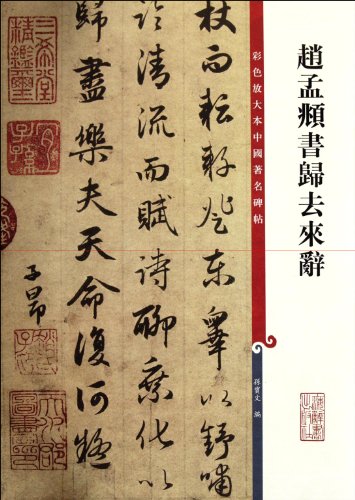 趙孟頫書歸去來辭
彩色放大本中國著名碑帖
孫寶文 編
杖而耘耔登東皋以舒嘯
臨清流而賦詩聊乘化以
歸盡樂夫天命復何疑
子昂
三希堂
精鑑璽
宜子孫